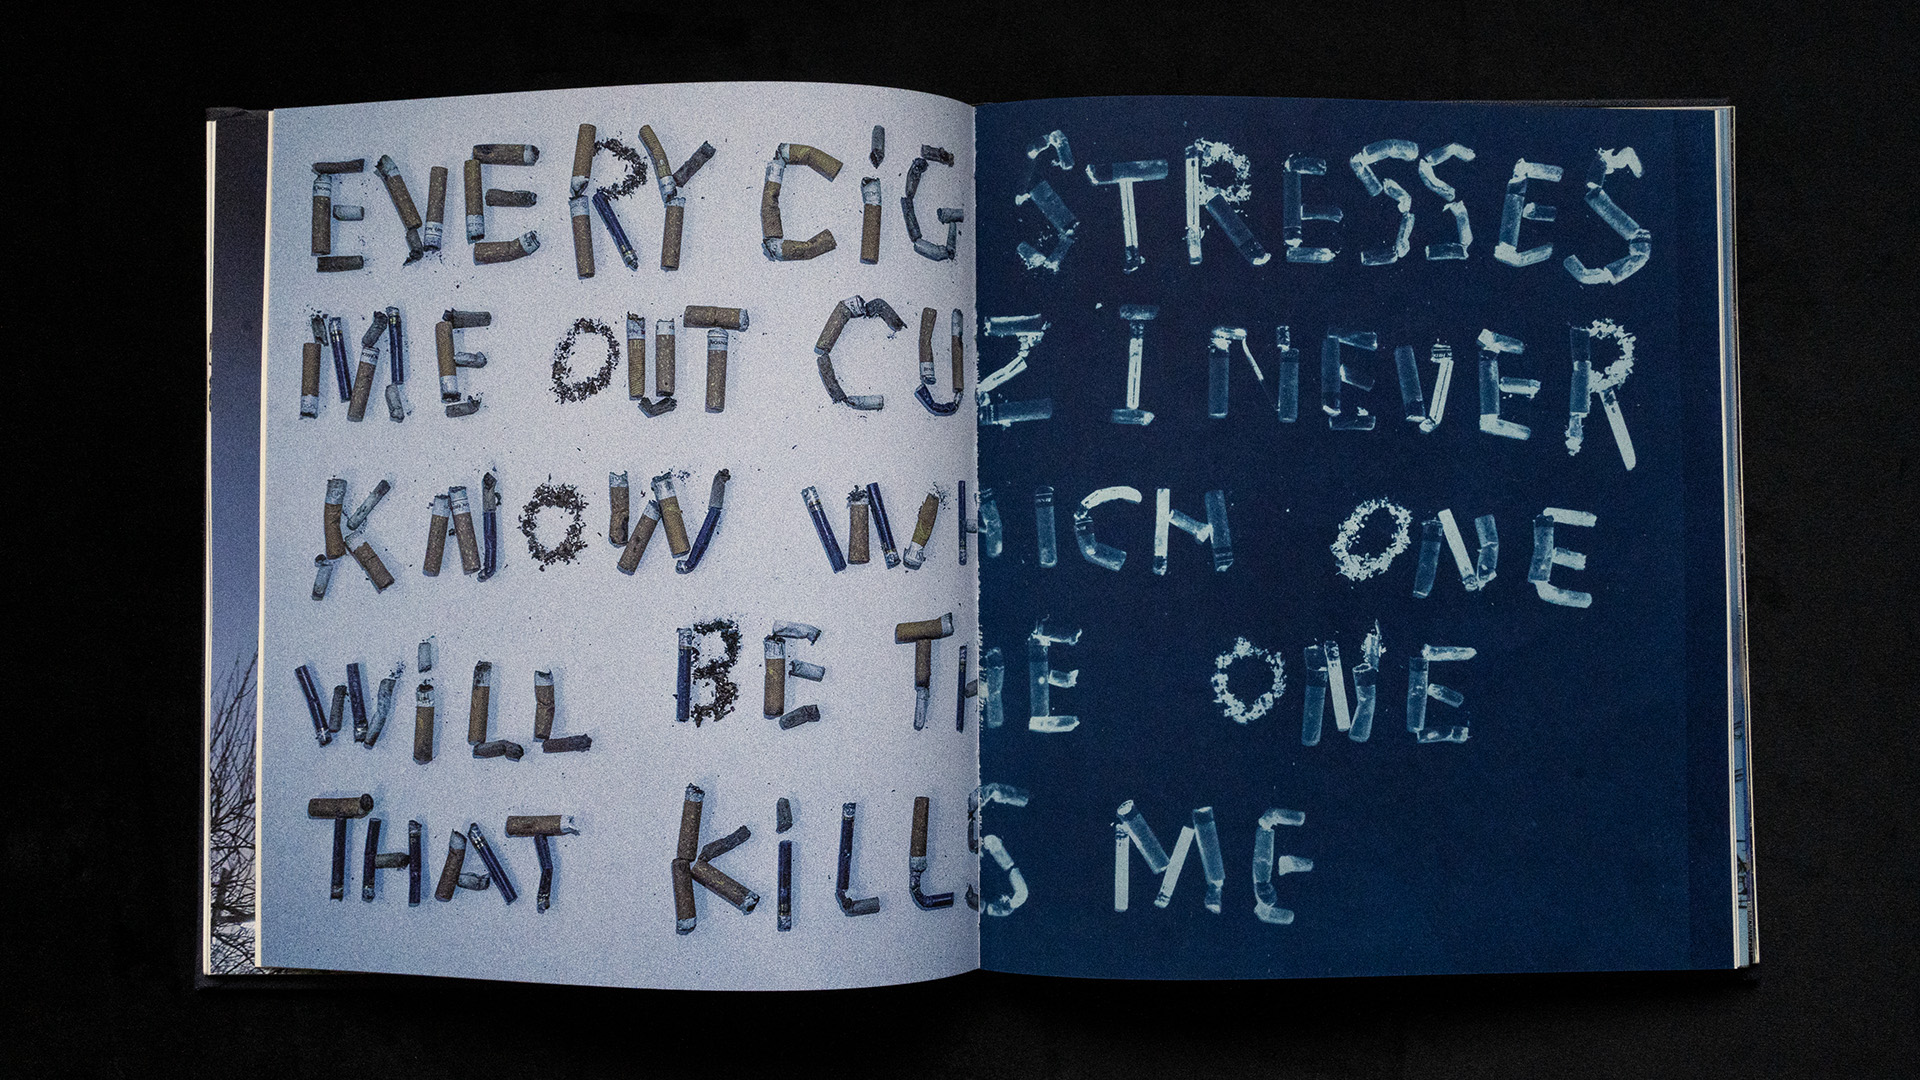 EVERY CiG STRESSES
ME OUT CUZ I NEVER
KNOW WHICH ONE
WiLL BE THE ONE
THAT KiLLS ME